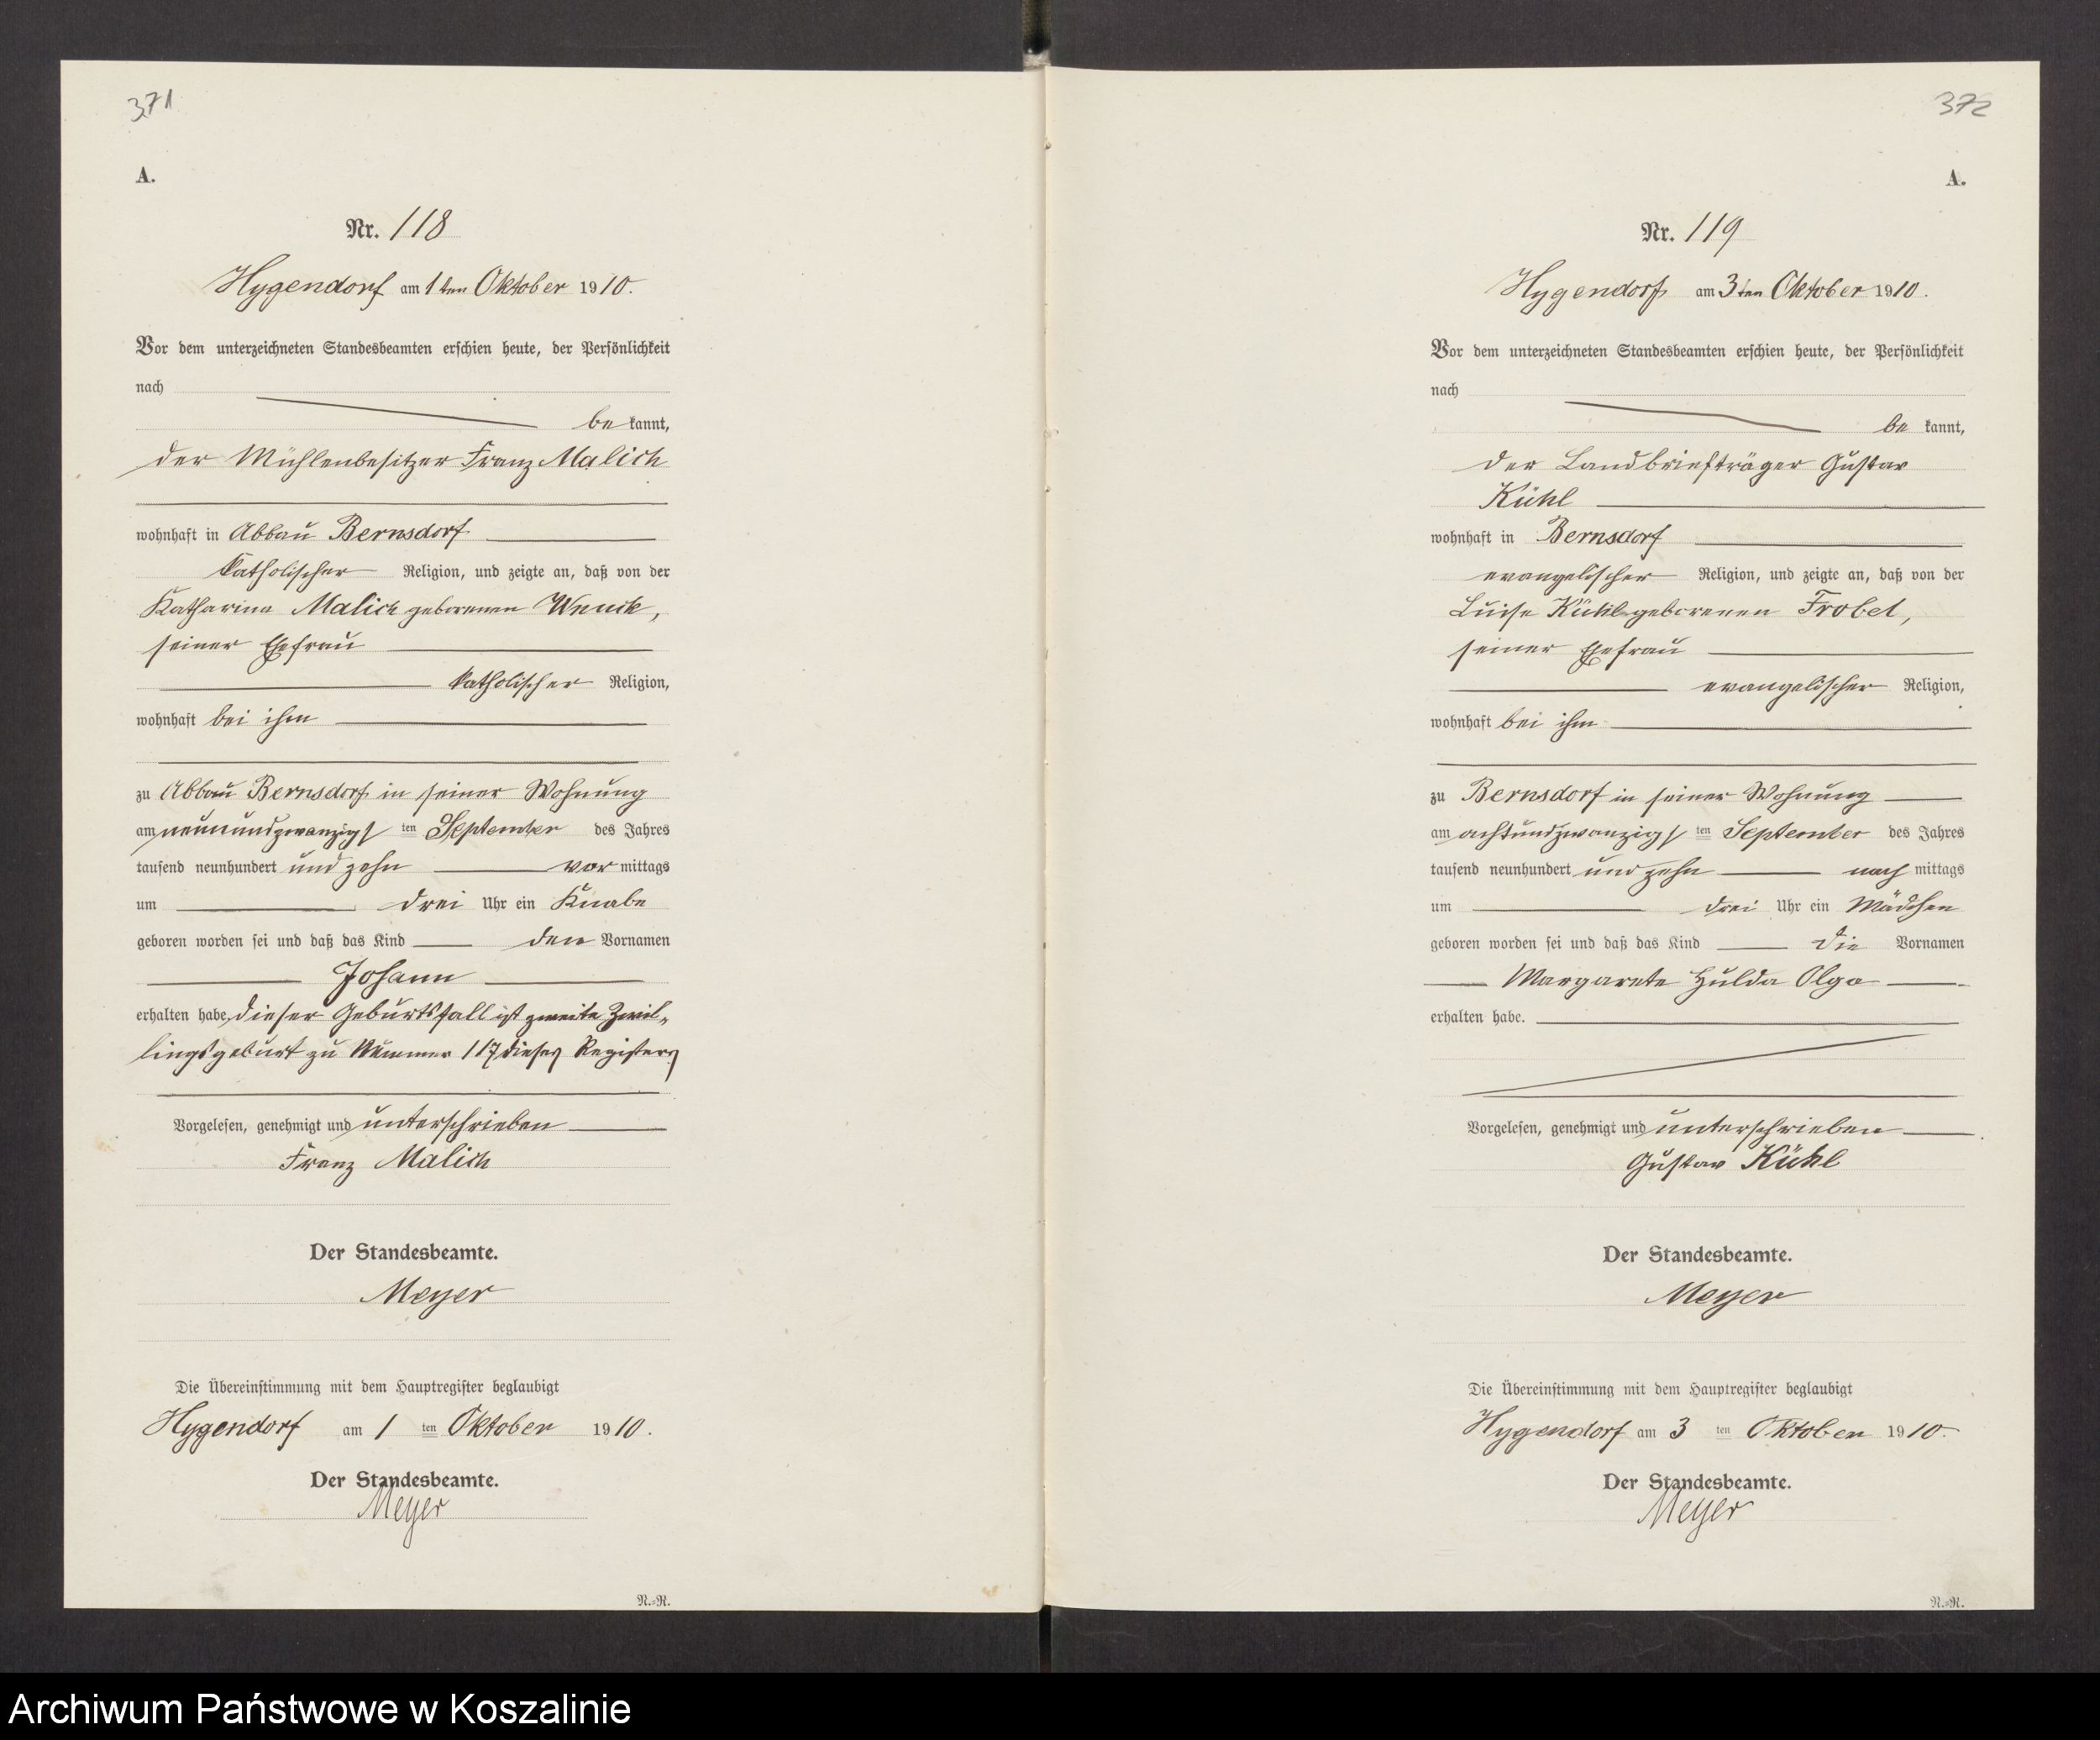 371
A.
Nr. 118
Hygendorf am 1ten Oktober 1910.
Vor dem unterzeichneten Standesbeamten erschien heute, der Persönlichkeit
nach
be kannt,
der Mühlenbesitzer Franz Malich
wohnhaft in Abbau Bernsdorf
katholischer Religion, und zeigte an, daß von der
Katharina Malich geborenen Wnuck,
seiner Ehefrau
katholischer Religion,
wohnhaft bei ihm
zu Abbau Bernsdorf in seiner Wohnung
am neunundzwanzigsten September des Jahres
tausend neunhundert und zehn vor mittags
um drei Uhr ein Knabe
geboren worden sei und daß das Kind den Vornamen
Johann
erhalten habe, dieser Geburtsfall ist zweite Zwil-
lingsgeburt zu Nummer 117 dieses Registers
Vorgelesen, genehmigt und unterschrieben
Franz Malich
Der Standesbeamte.
Meyer
Die Übereinstimmung mit dem Hauptregister beglaubigt
Hygendorf am 1 ten Oktober 1910.
Der Standesbeamte.
Meyer
N.=R.
372
A.
Nr. 119
Hygendorf am 3ten Oktober 1910.
Vor dem unterzeichneten Standesbeamten erschien heute, der Persönlichkeit
nach
be kannt,
der Landbriefträger Gustav
Kühl
wohnhaft in Bernsdorf
evangelischer Religion, und zeigte an, daß von der
Luise Kühl geborenen Frobel,
seiner Ehefrau
evangelischer Religion,
wohnhaft bei ihm
zu Bernsdorf in seiner Wohnung
am achtundzwanzigsten September des Jahres
tausend neunhundert und zehn nach mittags
um drei Uhr ein Mädchen
geboren worden sei und daß das Kind die Vornamen
Margarete Hulda Olga
erhalten habe.
Vorgelesen, genehmigt und unterschrieben
Gustav Kühl
Der Standesbeamte.
Meyer
Die Übereinstimmung mit dem Hauptregister beglaubigt
Hygendorf am 3 ten Oktober 1910.
Der Standesbeamte.
Meyer
N.=R.
Archiwum Państwowe w Koszalinie